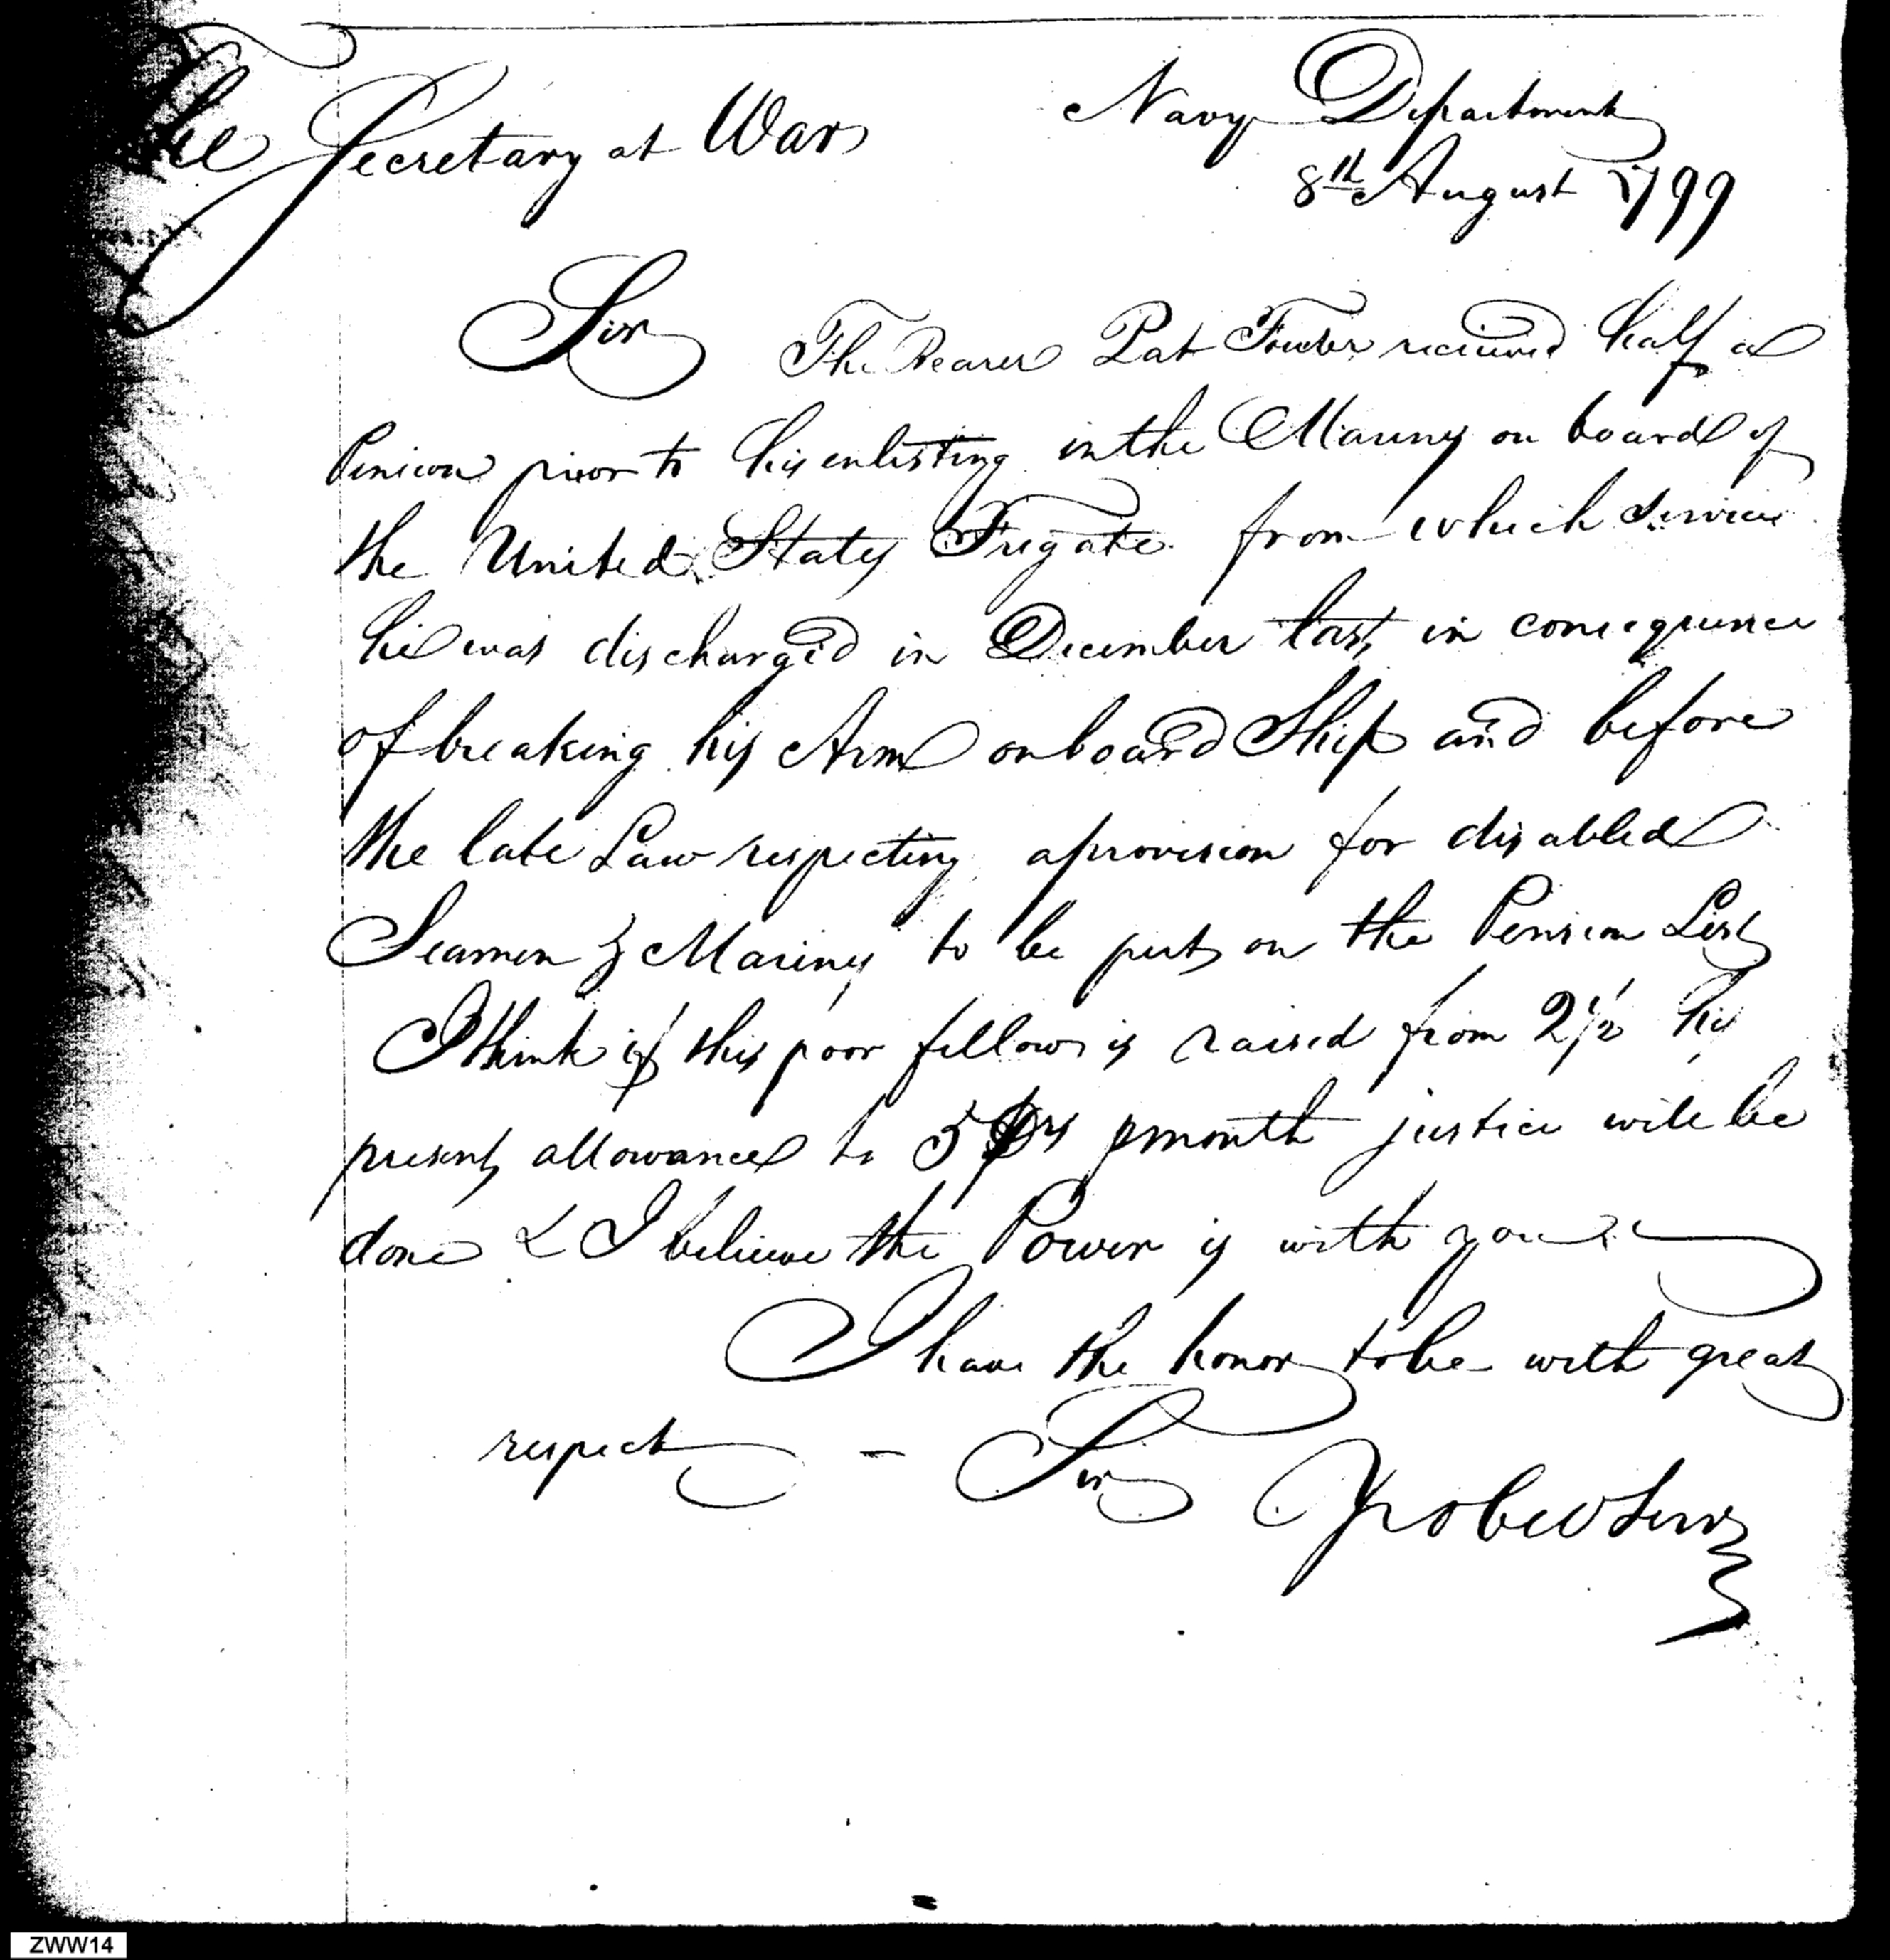 The Secretary at War
Navy Department
8th August 1799
Sir The Bearer Pat Fowler received half a
Pension prior to his enlisting in the Marines on board of
the United States Frigate from which Service
he was discharged in December last, in consequence
of breaking his Arm on board Ship and before
the late Law respecting a provision for disabled
Seamen & Marines to be put on the Pension List
I think if this poor fellow is raised from 2½ his
present allowance to 5 Drs p month justice will be
done & I believe the Power is with you
I have the honor to be with great
respect – Sir Yr ob Servt
ZWW14